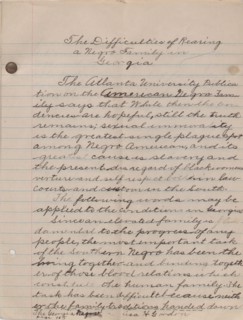 The Difficulties of Rearing
a Negro Family in
Georgia
The Atlanta University Publica
tion on the American Negro Fam
ily says that While the
dences are hopeful, still the truth
remains; sexual immorality
is the greatest single plague spot
among Negro Americans and its
greatest cause is slavery and
the present disregard of black woman's
virtue and self respect both in law
courts and custom in the south.
The following words may be
applied to the condition in Georgia
Since an elevated family is
fundamental to the progress of any
people, the most important task
of the southern Negro has been the
together and bringing togeth
er of those blood relations which
constitute the human family. The
task has been difficult because
of the family traditions handed down